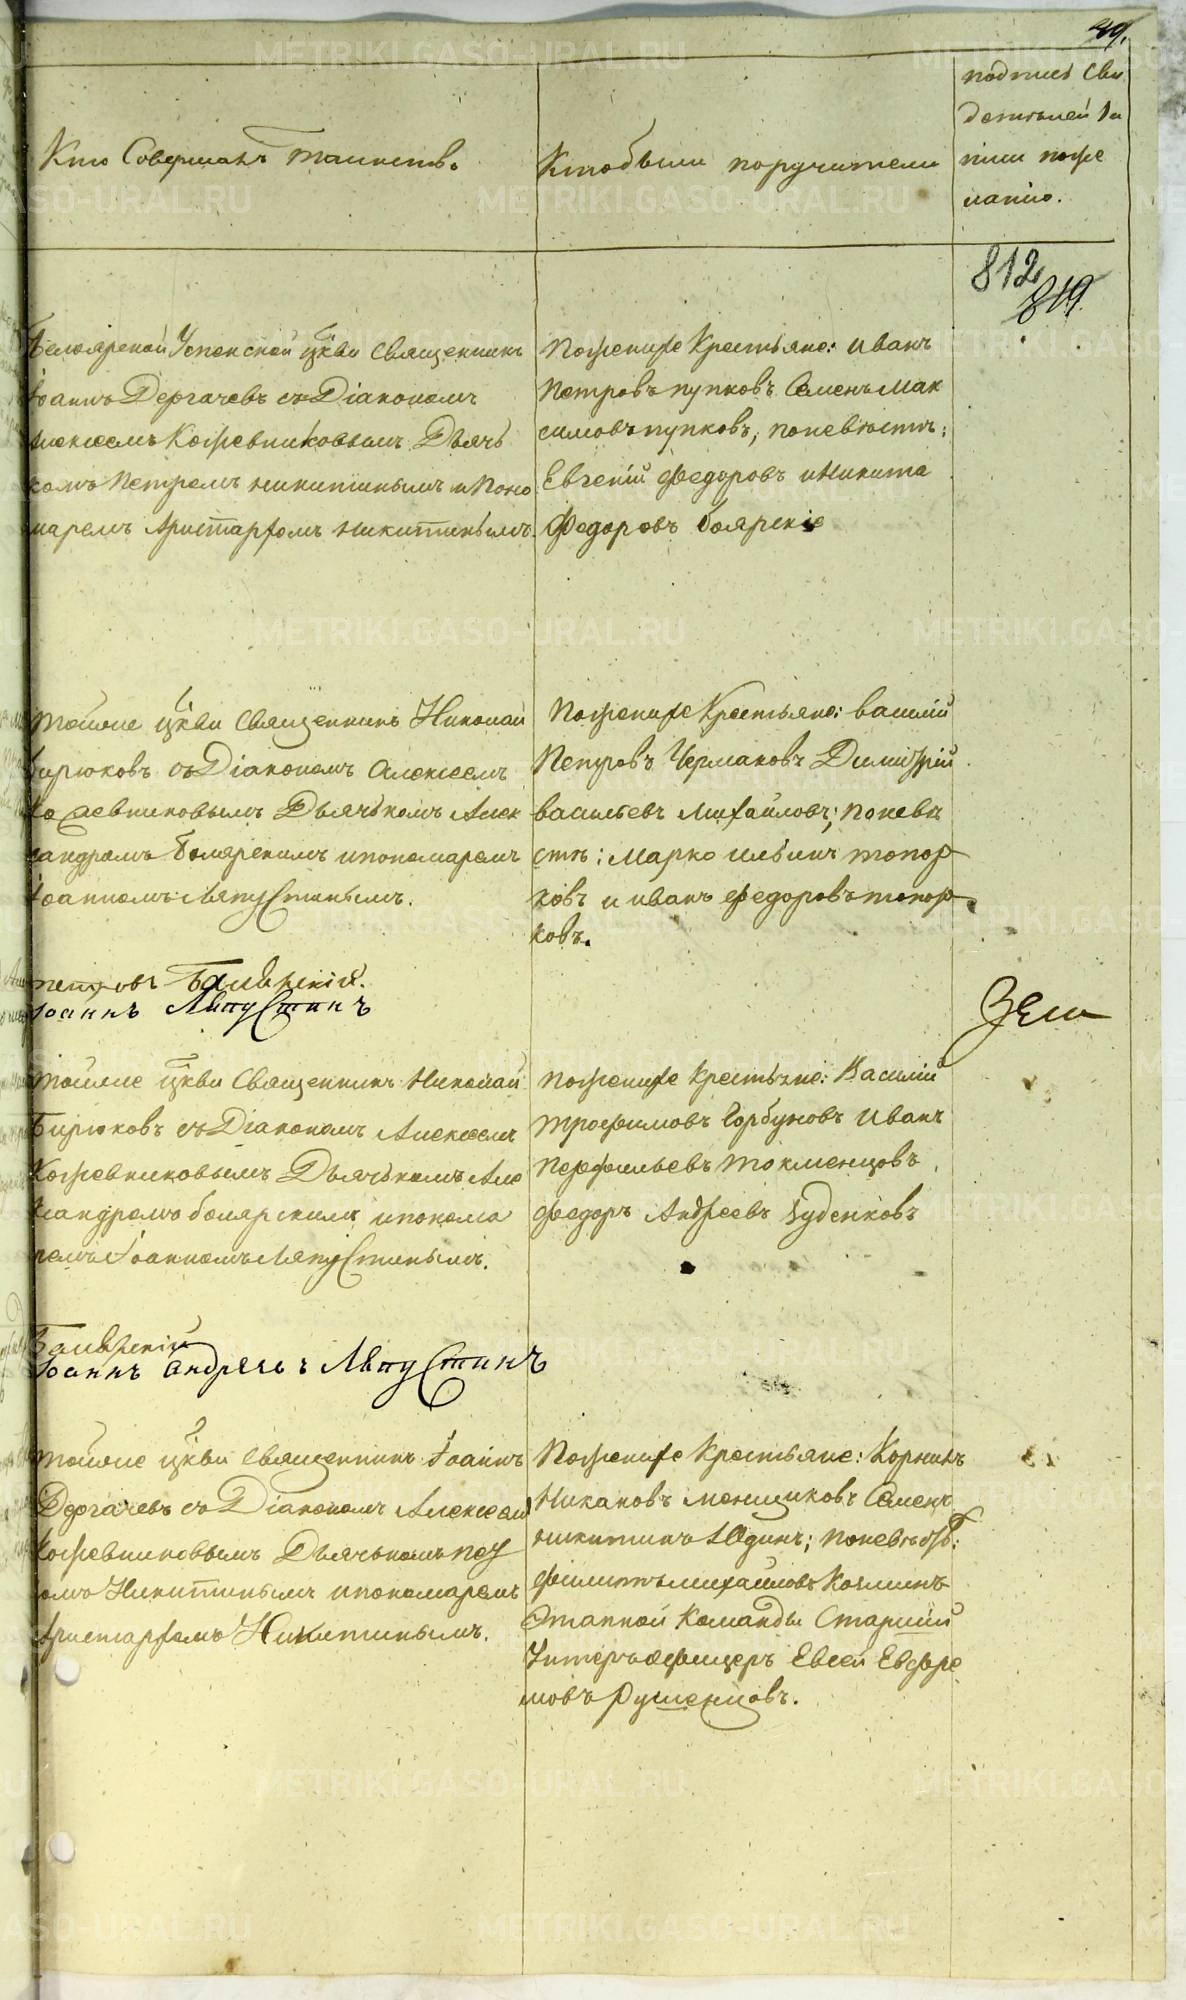 Кто Совершалъ таинство
Кто были поручители
подписъ Сви
детелей за
писи поже
ланію.
812
819
Белоярской Успенской цркви Священникъ
Іоаннъ Дергачевъ съ Діакономъ
Алексеемъ Кожевниковымъ Дьячь
комъ Петромъ Никитинымъ и Поно
маремъ Аристархомъ Никитинымъ.
По женихе Крестьяне: Иванъ
Петровъ пупковъ Семенъ Мак
симовъ пупковъ; по невесте:
Евгеній Федоровъ и Никита
Федоровъ боярскіе
Тойже цркви Священникъ Николай
Бирюковъ съ Діакономъ Алексеемъ
Кожевниковымъ Дьячькомъ Алек
сандромъ Боярскимъ и пономаремъ
Іоанномъ Ляпустинымъ.
По женихе Крестьяне: Василій
Петровъ Чермаковъ Димитрій
Васильевъ Михайловъ; по неве
сте: Марко Ильинъ топор
ковъ и иванъ Федоровъ топор
ковъ.
петровъ
Іоаннъ Ляпустинъ
Тойже цркви Священникъ Николай
Бирюковъ съ Діакономъ Алексеемъ
Кожевниковымъ Дьячькомъ Але
ксандромъ боярскимъ и понома
ремъ Іоанномъ Ляпустинымъ.
По женихе Крестьяне: Василій
Трофимовъ Горбуновъ Иванъ
Перфильевъ Токменцовъ
Федоръ Андреевъ Зуденковъ
Іоаннъ Андреевъ Ляпустинъ
Тойже цркви Священникъ Іоаннъ
Дергачевъ съ Діакономъ Алексеем
Кожевниковымъ Дьячькомъ Пет
омъ Никитинымъ и пономаремъ
Аристархомъ Никитинымъ.
По женихе Крестьяне: Корнилъ
Никановъ меншиковъ Семенъ
Никитинъ Юдинъ;
Филиппъ Михайловъ
Этапной Команды Старшій
Унтеръ офицеръ Евсей Ефре
мовъ Румянцовъ.